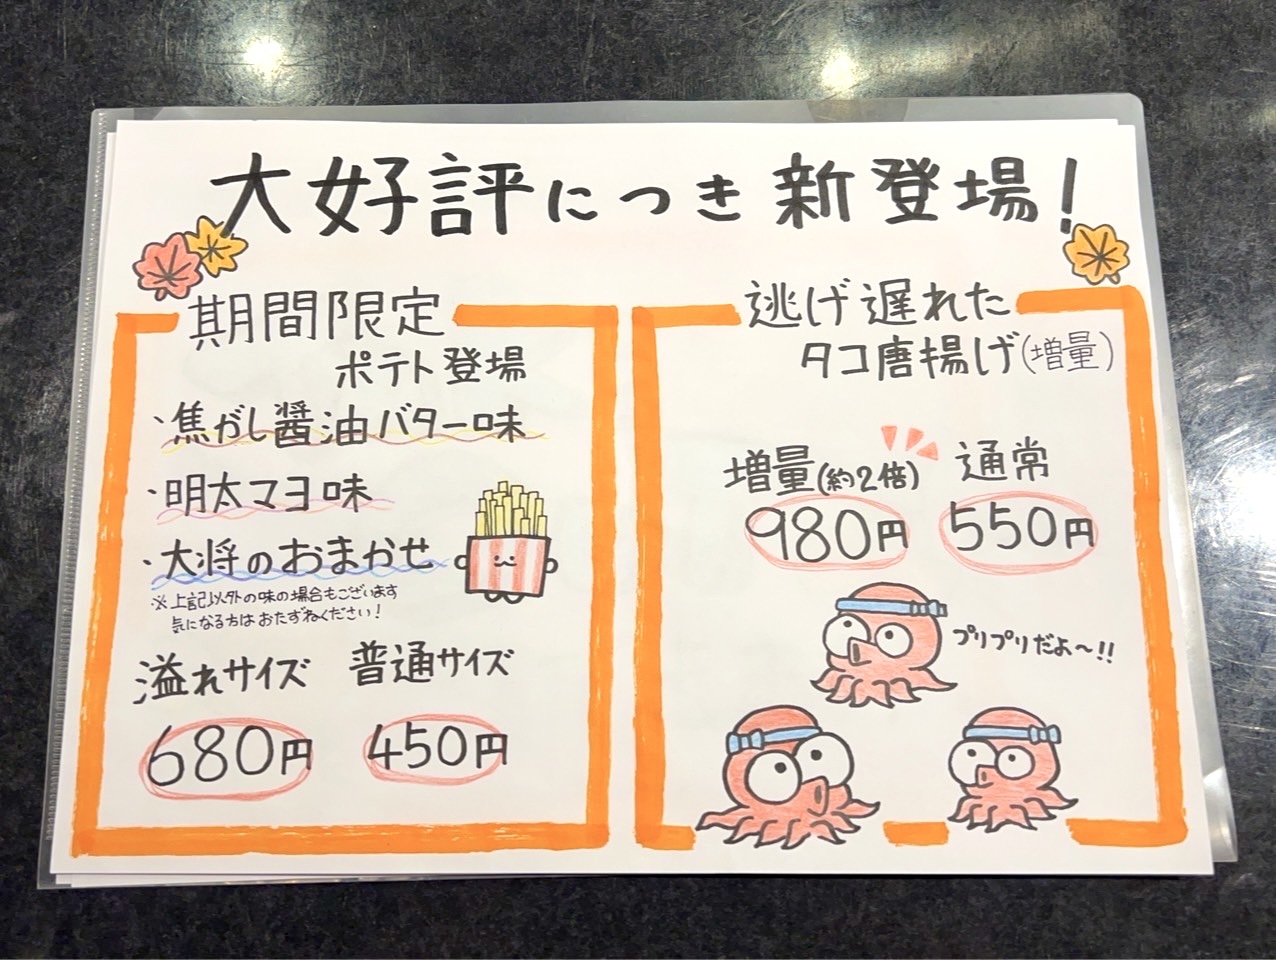 大好評につき新登場!
期間限定
ポテト登場
・焦がし醤油バター味
・明太マヨ味
・大将のおまかせ
※上記以外の味の場合もございます
気になる方はおたずねください!
溢れサイズ 普通サイズ
680円 450円
逃げ遅れた
タコ唐揚げ(増量)
増量(約2倍) 通常
980円 550円
プリプリだよ〜!!